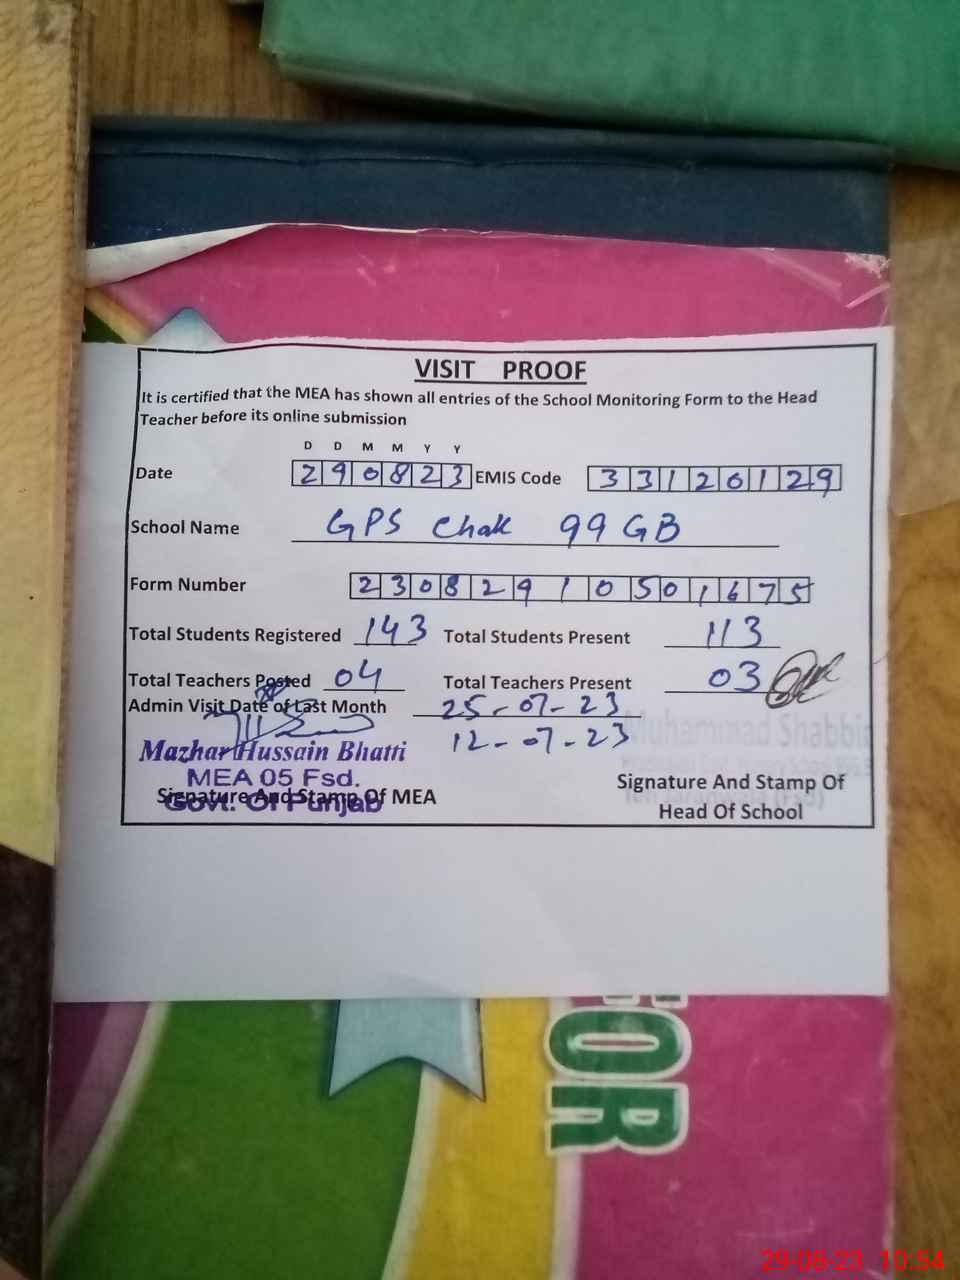 VISIT PROOF
It is certified that the MEA has shown all entries of the School Monitoring Form to the Head
Teacher before its online submission
D D M M Y Y
Date 290823 EMIS Code 33120129
School Name GPS Chak 99 GB
Form Number 23082910501675
Total Students Registered 143 Total Students Present 113
Total Teachers Posted 04 Total Teachers Present 03
Admin Visit Date of Last Month 25-07-23
12-07-23
Muhammad Shabbir
Mazhar Hussain Bhatti
MEA 05 Fsd.
Govt. Of Punjab
Signature And Stamp Of MEA
Signature And Stamp Of
Head Of School
FOR
29-08-23 10:54